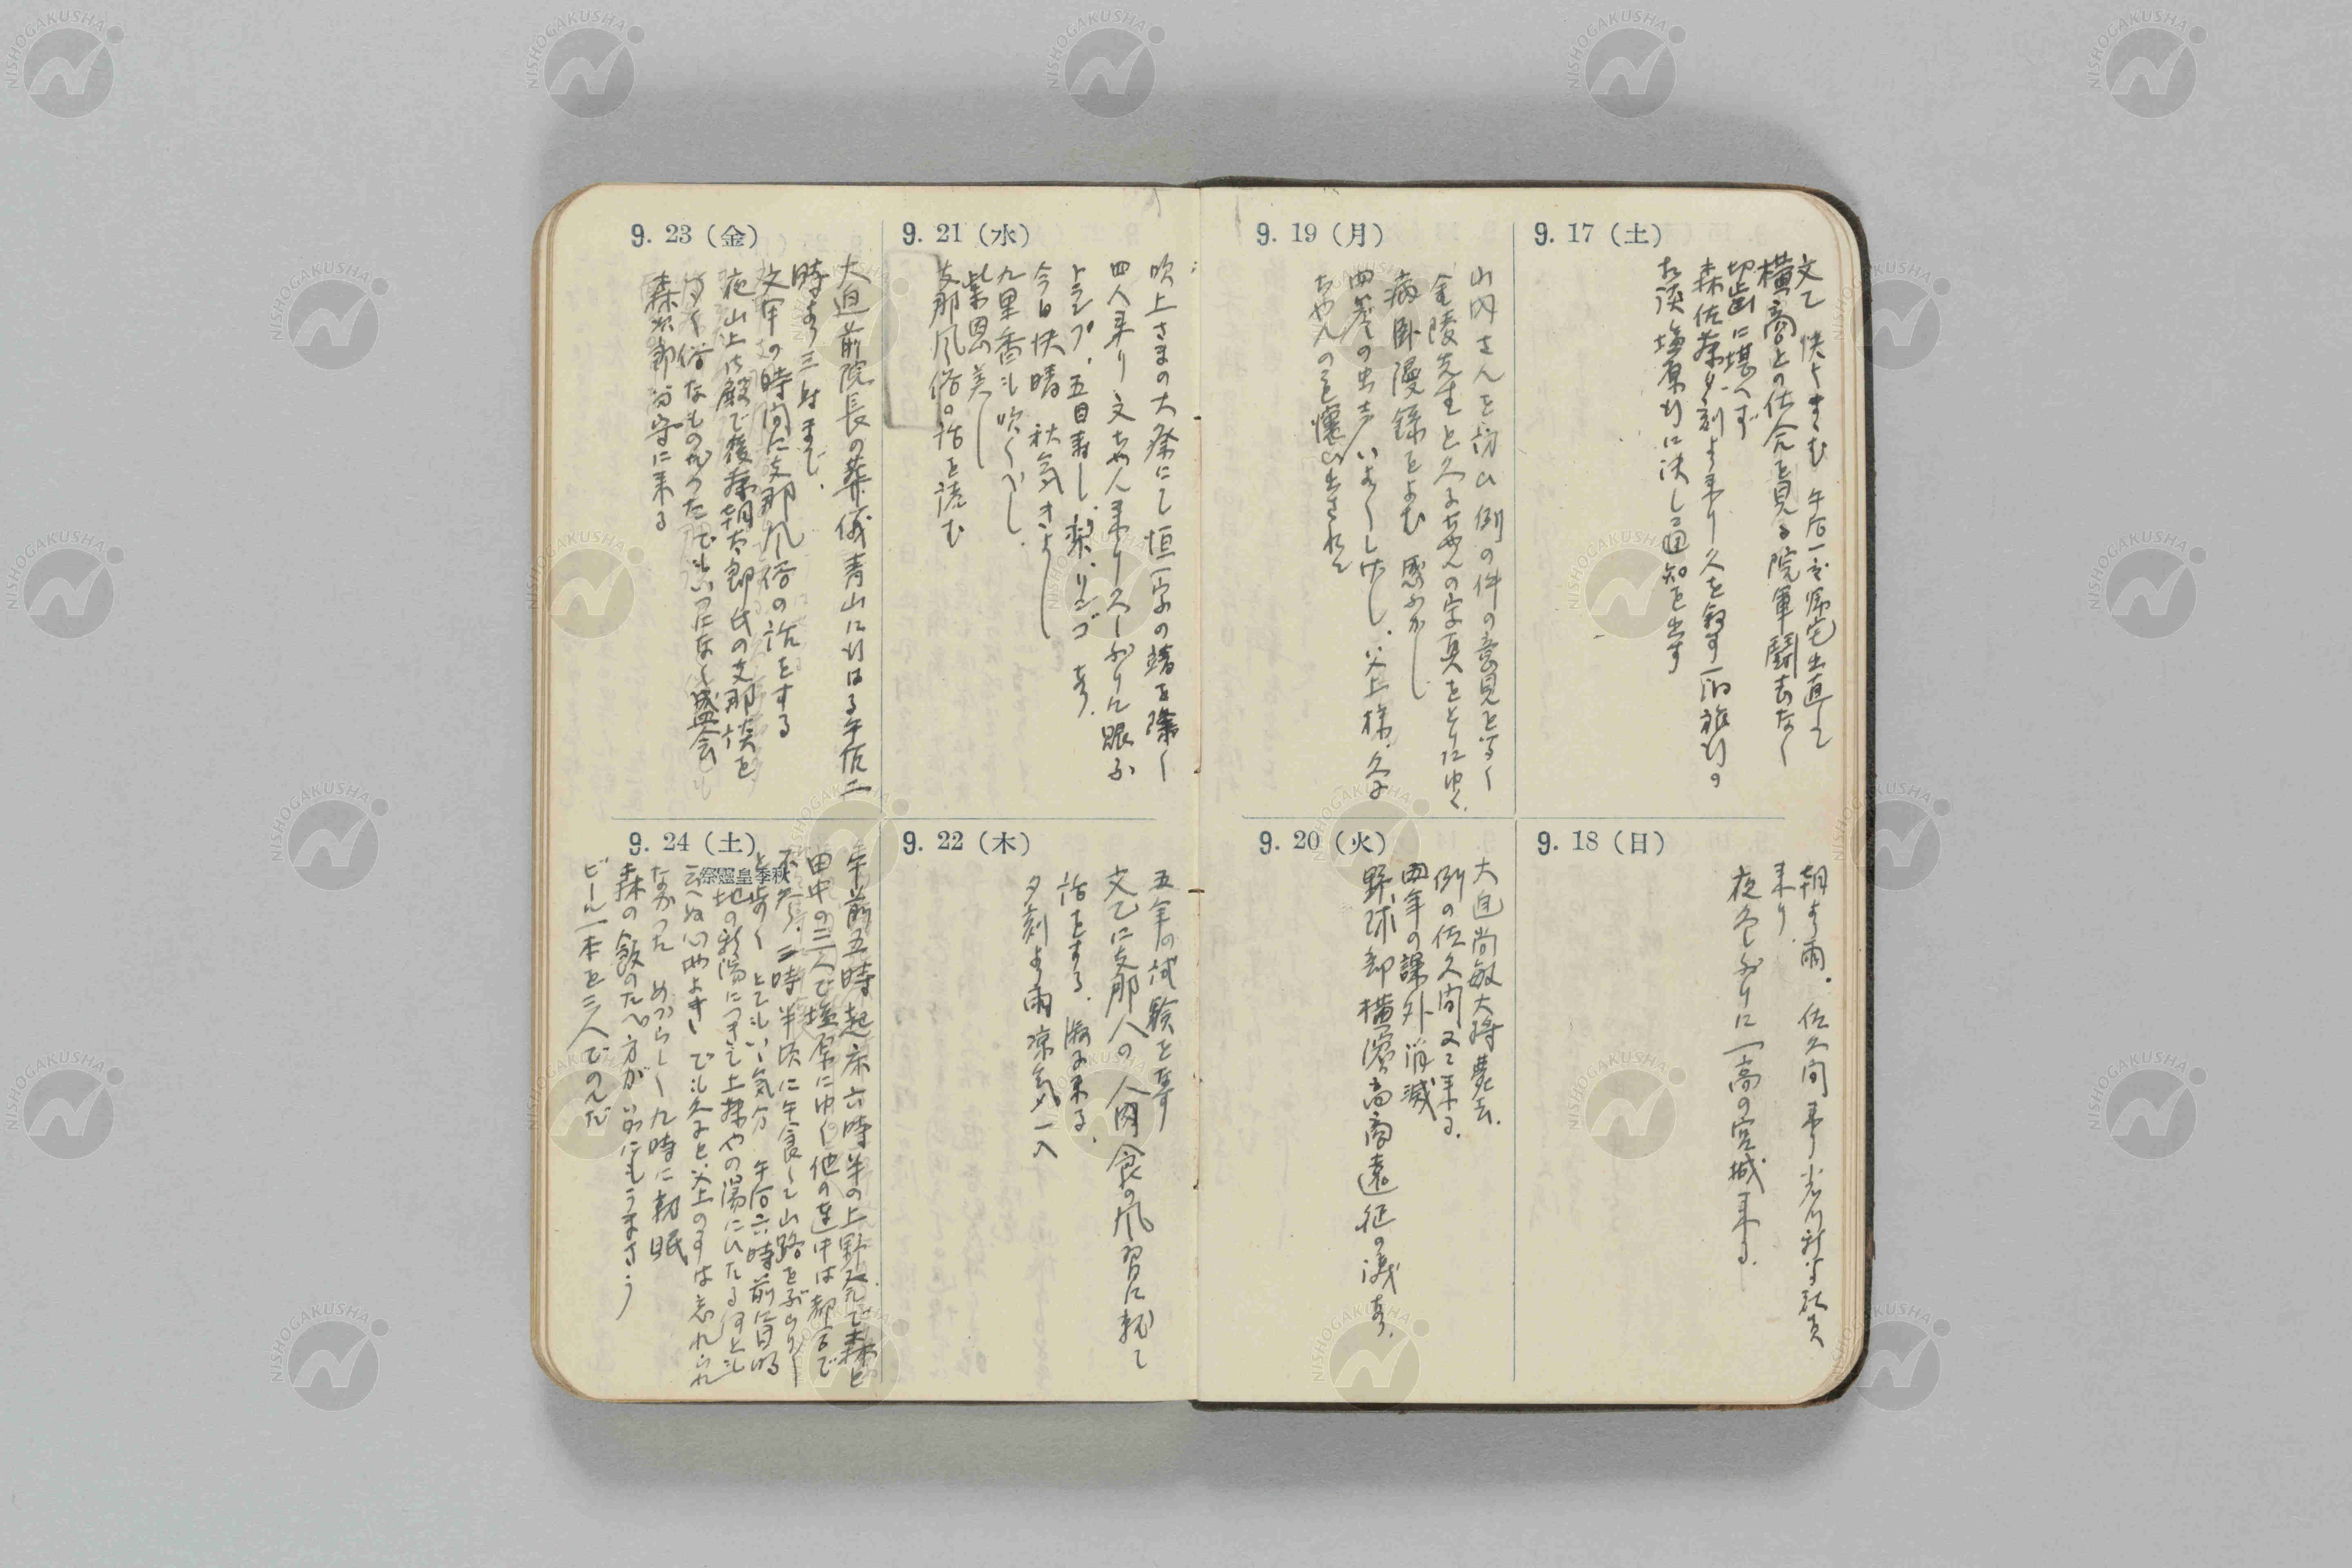 9. 17 (土)
文乙 快よすむ 午后一度帰宅出直して
横高との仕合を見る 院軍闘志なく
切歯に堪へず
森佐茶夕刻より来り久を叙す 一泊旅行の
相談 塩原行に決し通知を出す
9. 18 (日)
朝より雨。佐久間来り 社員
来り
夜久しぶりに一高の宮城来る.
9. 19 (月)
山内さんを訪ひ例の件の意見をきく
金陵先生と久子ちやんの写真をとりにゆく.
病臥漫録をよむ 感ふかし
四巻の出 いよ〳〵しげし. 父上様.久子
ちやんのこと懐ひ出されて
9. 20 (火)
大迫尚敏大将薨去.
例の佐久間又々来る.
四年の課外消滅
野球部横濱高商遠征の議あり.
9. 21 (水)
吹上さまの大祭にて恒 字の を除く
四人来り 文ちやん来り久しぶりに賑ふ
トランプ. 五目寿し.梨.リンゴ あり.
今日快晴 秋気きよし
九里香も吹くべし.
紫恩美し
支那風俗の話を読む
9. 22 (木)
五年の試験を行ふ
文乙に支那人の人肉食の風習に就て
話をする. 来る.
夕刻より雨 凉気一入
9. 23 (金)
大迫前院長の葬儀青山に行はる午后二
時より三時まで.
文甲の時間に支那風俗の話をする
夜 山上御殿で後藤朝太郎氏の支那談を
きく 俗なものだつたでもいつになく盛会
森次郎留守に来る
9. 24 (土)
秋季皇靈祭
午前五時起床 六時半の上野発で森と
田中の三人で塩原にゆく他の連中は都合で
不参. 二時半頃に午食して山路をぶらり〳〵
と歩く とてもいゝ気分 午后六時前に目的
地の新湯につきて上藤やの湯にひたる何とも
云へぬ心地よさ でも久子と父上の事は忘れられ
なかつた めづらしく九時に就眠
森の飯のたべ方がいかにもうまさう
ビール一本を三人でのんだ